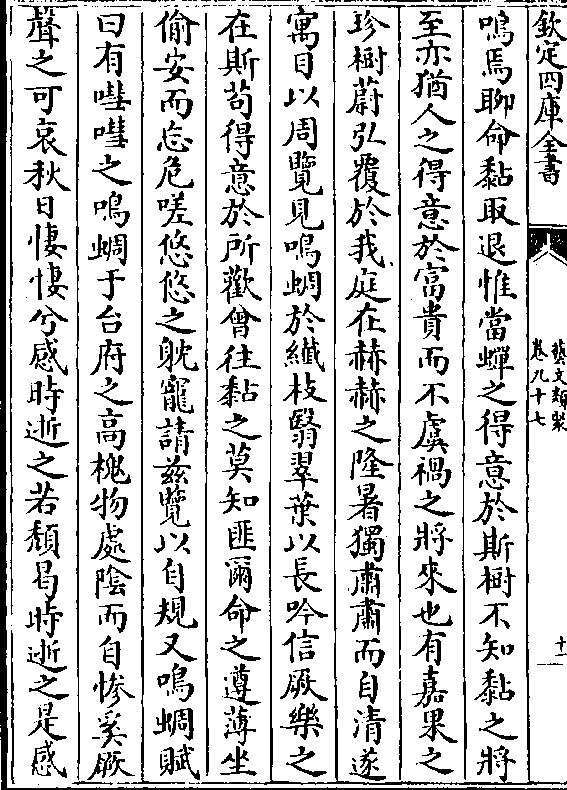 欽定四庫全書
藝文類聚
卷九十七
十一
鳴焉聊命黏取退惟當蟬之得意於斯樹不知黏之將
至亦猶人之得意於富貴而不虞禍之將來也有嘉果之
珍樹蔚弘覆於我庭在赫赫之隆暑獨肅肅而自清遂
寓目以周覽見鳴蜩於纖枝翳翠葉以長吟信厥樂之
在斯苟得意於所歡曾往黏之莫知匪爾命之遵薄坐
偷安而忘危嗟悠悠之耽寵請茲覽以自規又鳴蜩賦
曰有嘒嘒之鳴蜩于台府之高槐物處陰而自慘奚厥
聲之可哀秋日悽悽兮感時逝之若頹曷時逝之是感